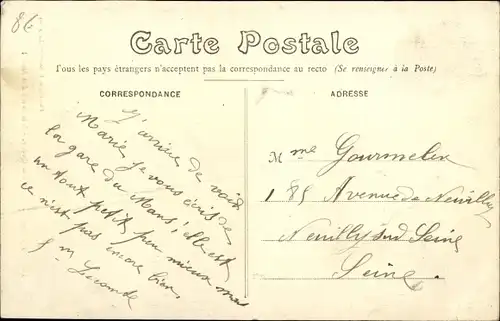 Carte Postale
Tous les pays étrangers n'acceptent pas la correspondance au recto (Se renseigner à la Poste)
CORRESPONDANCE
J'arrive de voir
Marie je vous écris de
la gare du Mans, elle est
un tout petit peu mieux mais
ce n'est pas encore bien,
Lecomte
ADRESSE
Mme Gourmelen
185 Avenue de Neuilly
Neuilly sur Seine
Seine.